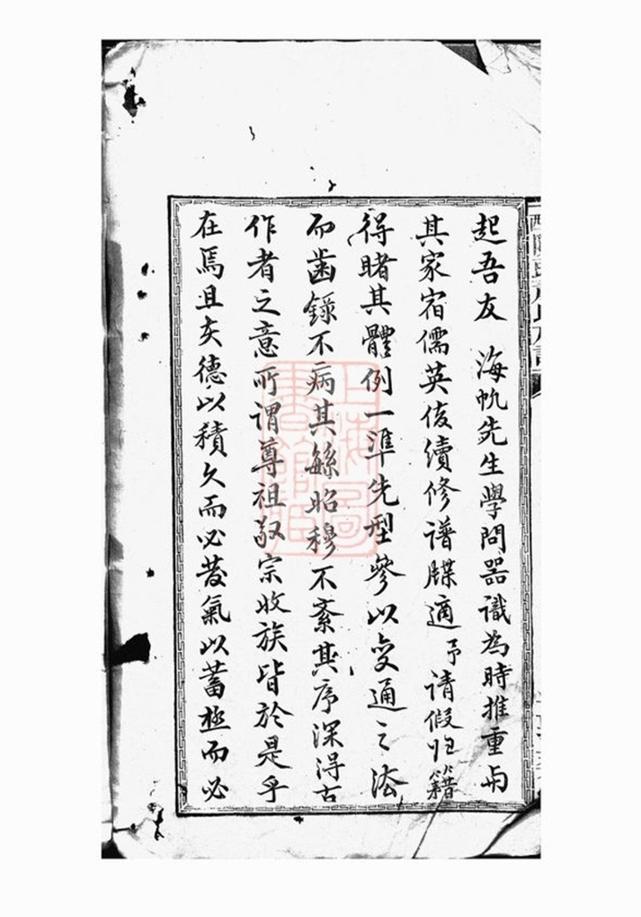 起吾友 海帆先生學問器識為時推重与
其家宿儒英俊續修譜牒適予请假归籍
得睹其體例一準先型參以变通之法
而齒錄不病其繇昭穆不紊其序深得古
作者之意所谓尊祖敬宗收族皆於是乎
在焉且夫德以積久而必發氣以蓄極而必
上海圖書館藏